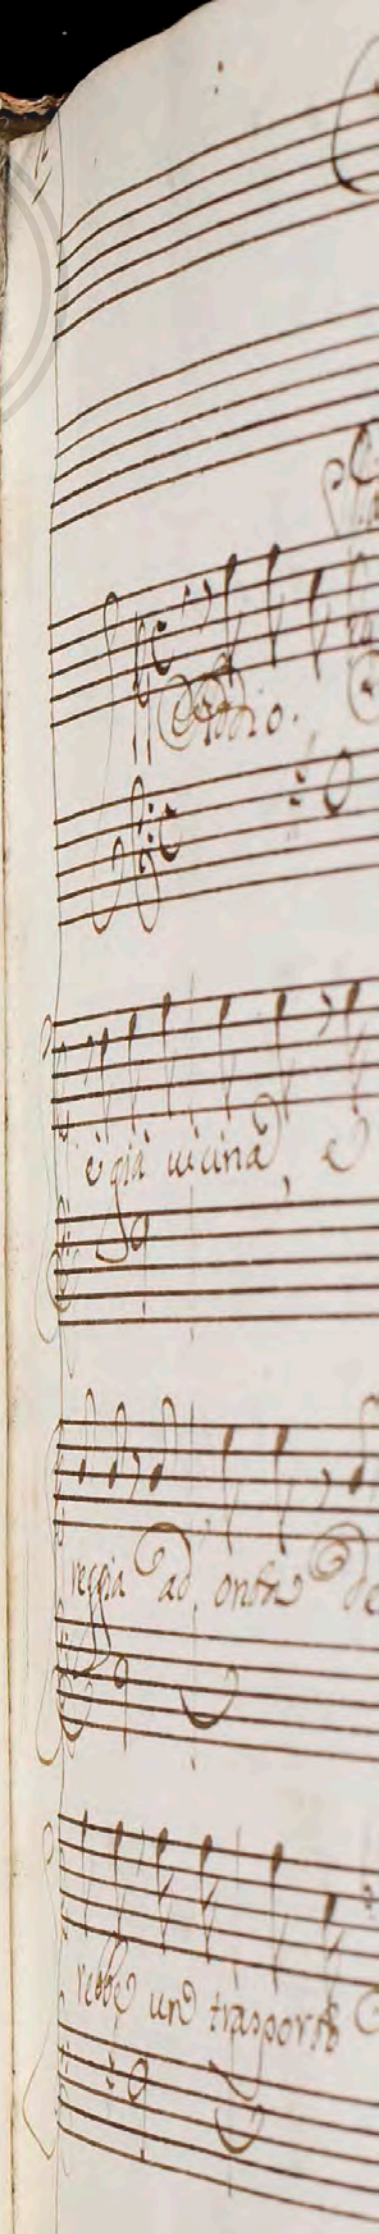 Addio.
è già vicina, e
reggia ad onta de
rebbe un trasporto